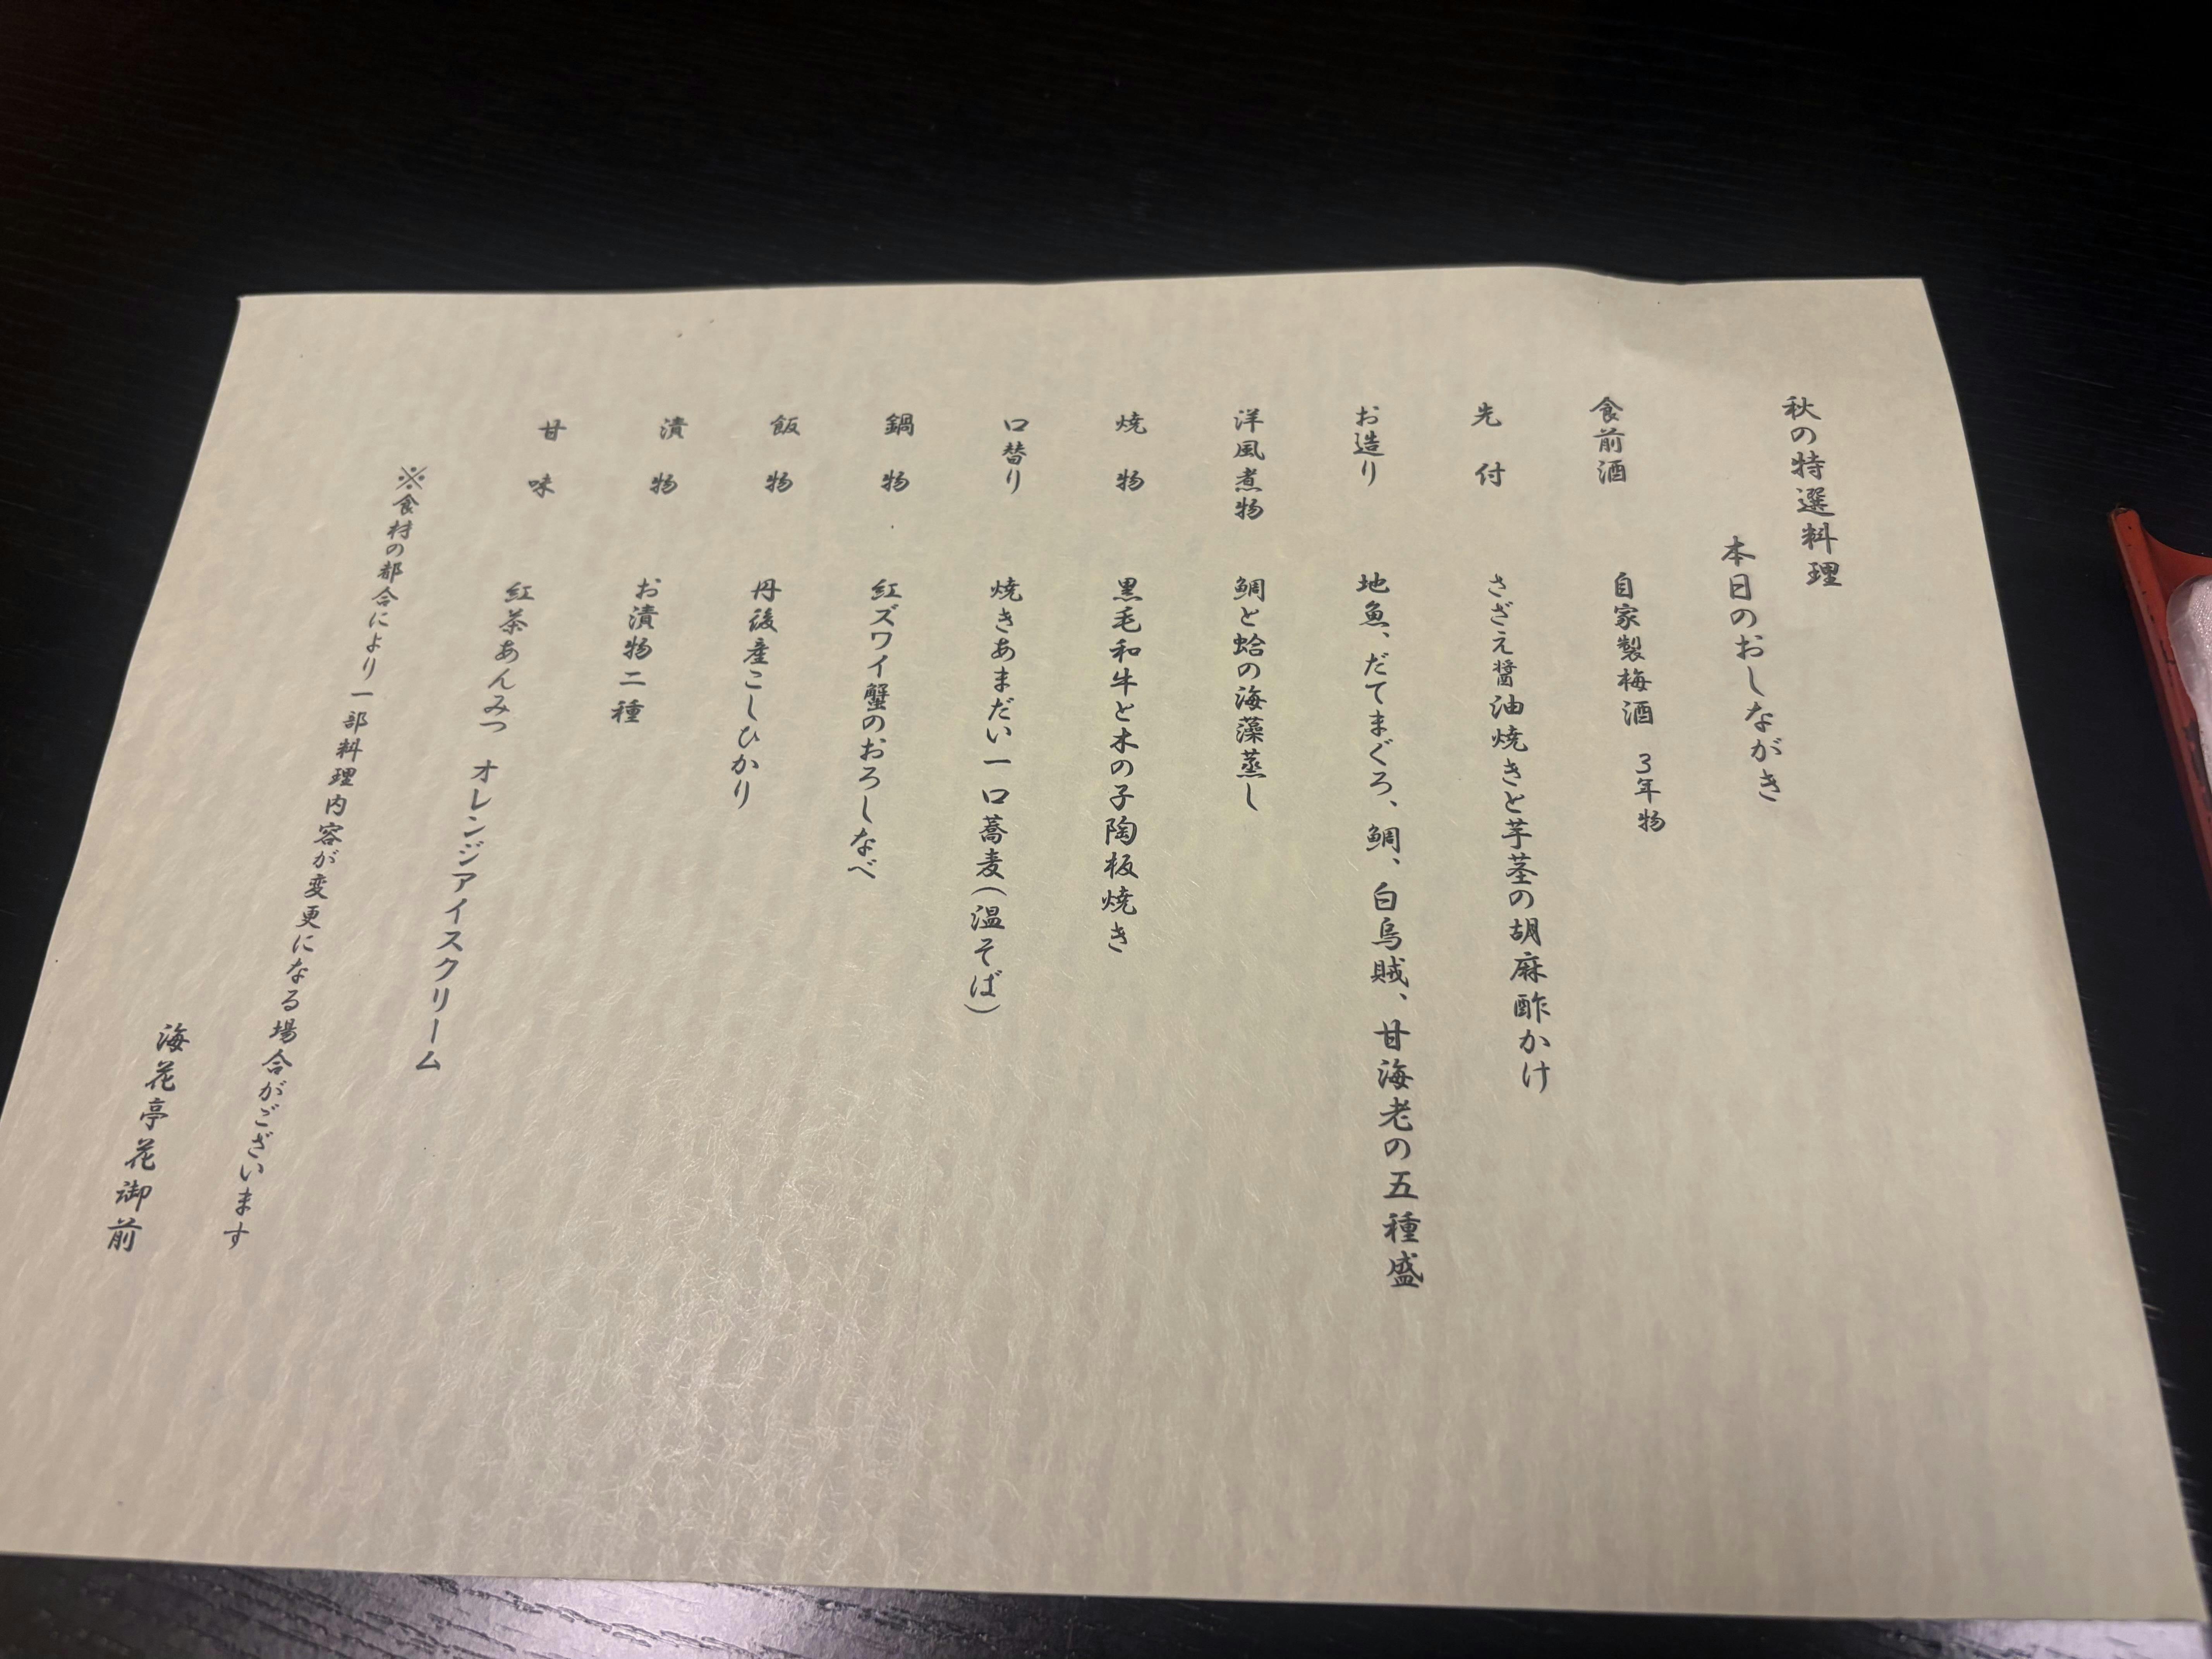 秋の特選料理
本日のおしながき
食前酒 自家製梅酒 3年物
先付 さざえ醤油焼きと芋茎の胡麻酢かけ
お造り 地魚、だてまぐろ、鯛、白烏賊、甘海老の五種盛
洋風煮物 鯛と蛤の海藻蒸し
焼物 黒毛和牛と木の子陶板焼き
口替り 焼きあまだい一口蕎麦(温そば)
鍋物 紅ズワイ蟹のおろしなべ
飯物 丹後産こしひかり
漬物 お漬物二種
甘味 紅茶あんみつ オレンジアイスクリーム
※食材の都合により一部料理内容が変更になる場合がございます
海花亭花御前